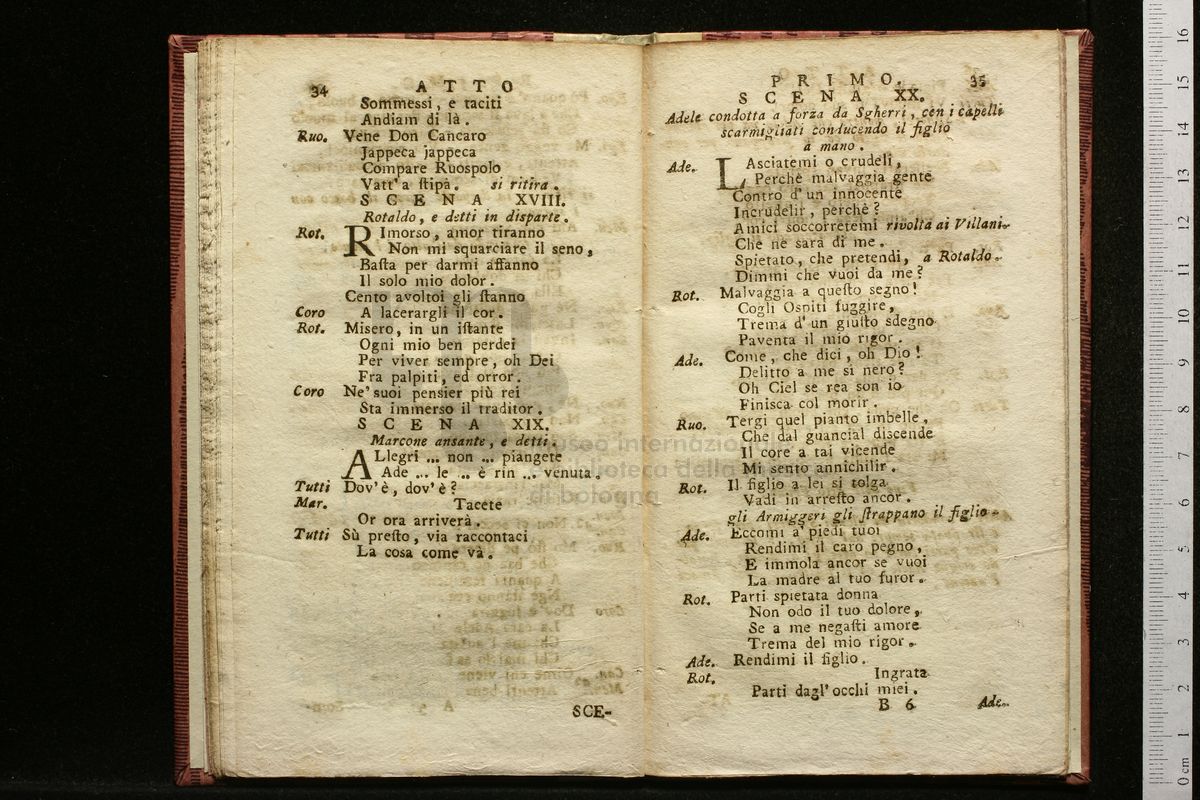 34
ATTO
Sommessi, e taciti
Andiam di là.
Ruo. Vene Don Cancaro
Jappeca jappeca
Compare Ruospolo
Vatt' a ſtipà. si ritira.
SCENA XVIII.
Rotaldo, e detti in disparte.
Rot. RImorso, amor tiranno
Non mi squarciare il seno,
Baſta per darmi affanno
Il solo mio dolor.
Cento avoltoi gli ſtanno
Coro A lacerargli il cor.
Rot. Misero, in un iſtante
Ogni mio ben perdei
Per viver sempre, oh Dei
Fra palpiti, ed orror.
Coro Ne' suoi pensier più rei
Sta immerso il traditor.
SCENA XIX.
Marcone ansante, e detti.
ALlegri ... non ... piangete
Ade ... le .. è rin ... venuta.
Tutti Dov'è, dov'è?
Mar. Tacete
Or ora arriverà.
Tutti Sù preſto, via raccontaci
La cosa come và.
SCE-
PRIMO. 35
SCENA XX.
Adele condotta a forza da Sgherri, cen i capelli
scarmigliati conducendo il figlio
a mano.
Ade. LAsciatemi o crudeli,
Perchè malvaggia gente
Contro d'un innocente
Incrudelir, perchè?
Amici soccorretemi rivolta ai Villani.
Che ne sarà di me.
Spietato, che pretendi, a Rotaldo.
Dimmi che vuoi da me?
Rot. Malvaggia a queſto segno!
Cogli Ospiti fuggire,
Trema d'un giuſto sdegno
Paventa il mio rigor.
Ade. Come, che dici, oh Dio!
Delitto a me si nero?
Oh Ciel se rea son io
Finisca col morir.
Ruo. Tergi quel pianto imbelle,
Che dal guancial discende
Il core a tai vicende
Mi sento annichilir.
Rot. Il figlio a lei si tolga
Vadi in arreſto ancor.
gli Armiggeri gli ſtrappano il figlio.
Ade. Eccomi a' piedi tuoi
Rendimi il caro pegno,
E immola ancor se vuoi
La madre al tuo furor.
Rot. Parti spietata donna
Non odo il tuo dolore,
Se a me negaſti amore
Trema del mio rigor.
Ade. Rendimi il figlio.
Rot. Ingrata
Parti dagl'occhi miei.
B 6 Ade.
museo internazionale
biblioteca della
di bologna
0 cm 1 2 3 4 5 6 7 8 9 10 11 12 13 14 15 16